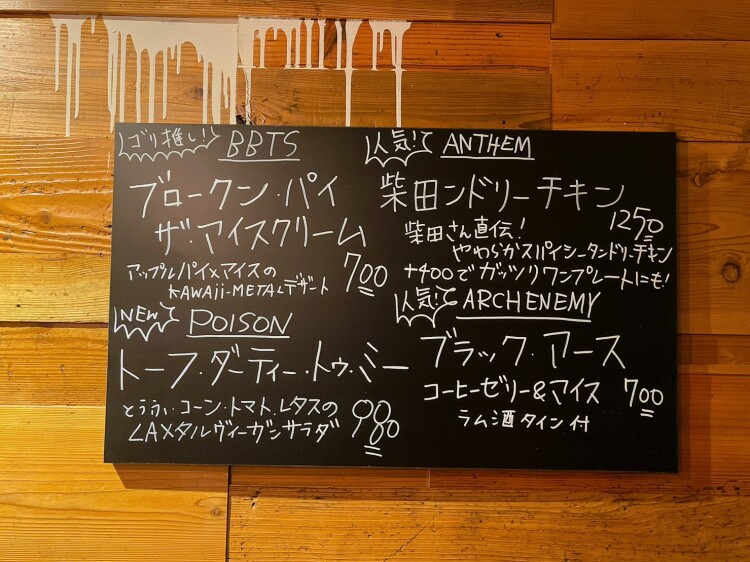 ゴリ推し! BBTS
ブロークン・パイ
ザ・アイスクリーム
アップルパイ×アイスの
KAWAii-METALデザート 700
NEW POISON
トーフ・ダーティー・トゥ・ミー
とうふ・コーン・トマト・レタスの
LAメタルヴィーガンサラダ 980
人気! ANTHEM
柴田ンドリーチキン
1250
柴田さん直伝!
やわらかスパイシータンドリーチキン
+400でガッツリワンプレートにも!
人気! ARCH ENEMY
ブラック・アース
コーヒーゼリー&アイス 700
ラム酒タイン付